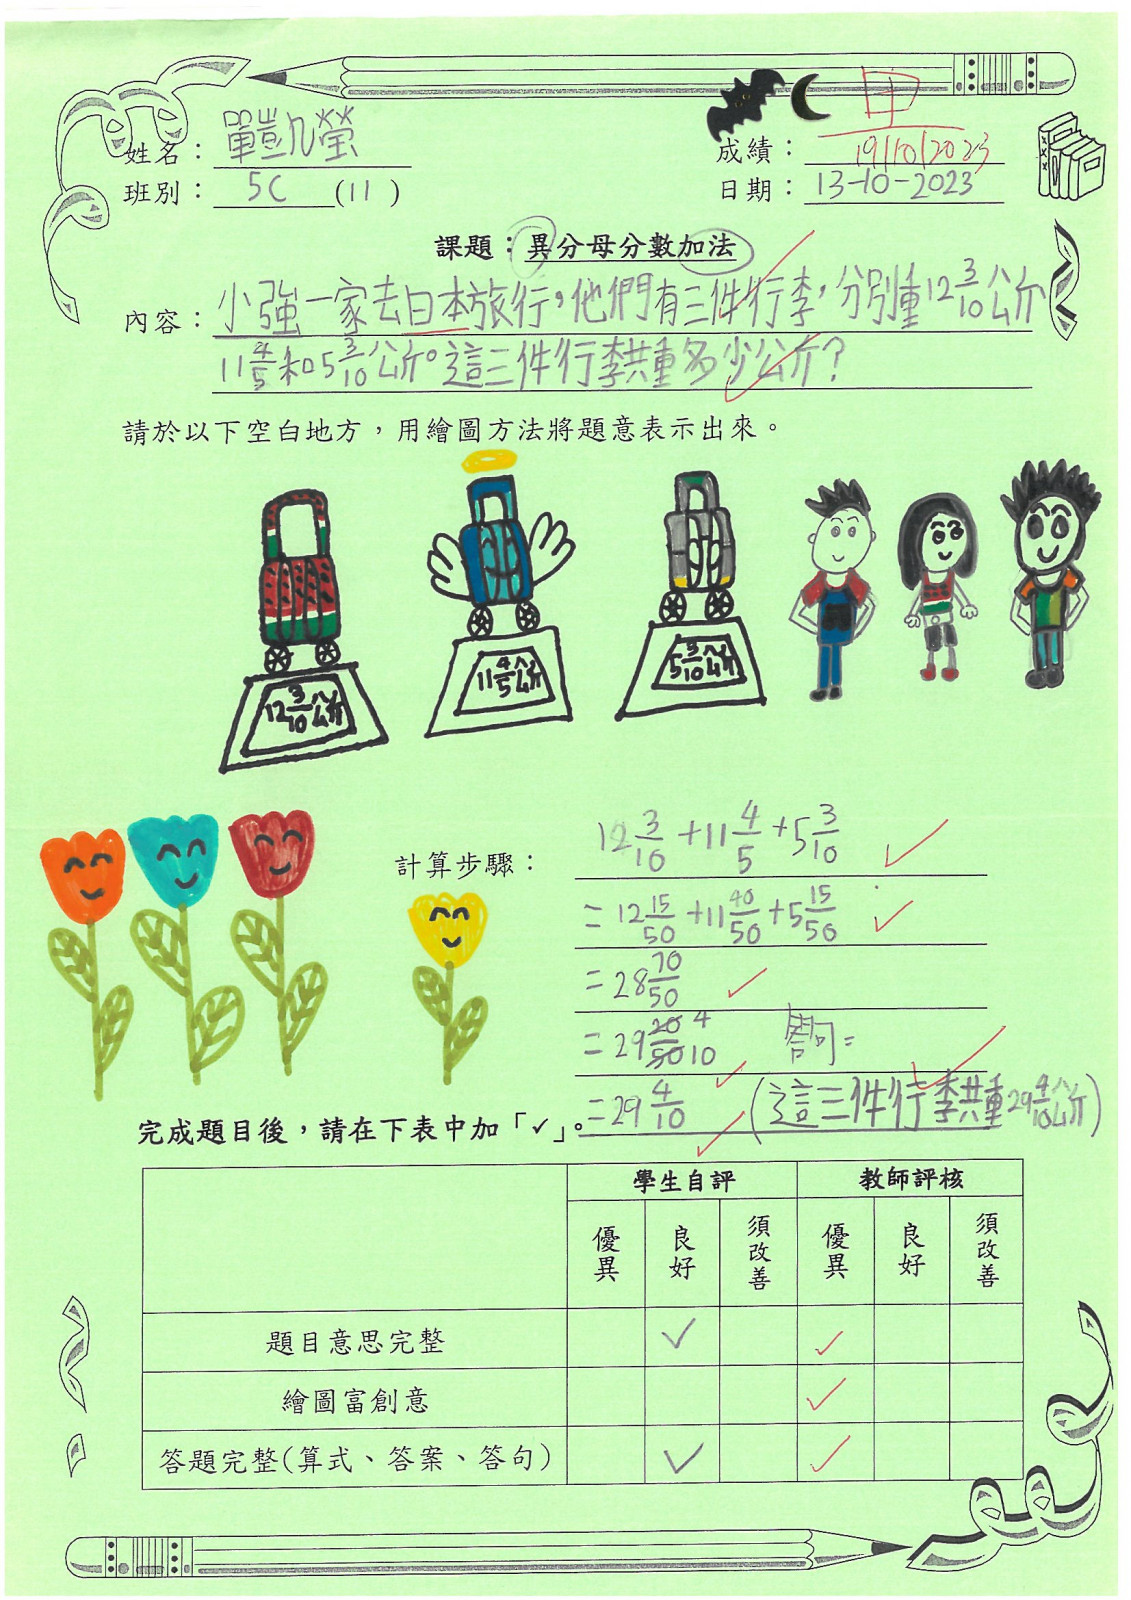 甲
姓名：單凱瑩
成績：19/10/2023
班別：5C (11)
日期：13-10-2023
課題：異分母分數加法
內容：小強一家去日本旅行，他們有三件行李，分別重12 3/10公斤
11 4/5和5 3/10公斤。這三件行李共重多少公斤？
請於以下空白地方，用繪圖方法將題意表示出來。
12 3/10公斤
11 4/5公斤
5 3/10公斤
計算步驟：
12 3/10 + 11 4/5 + 5 3/10
= 12 15/50 + 11 40/50 + 5 15/50
= 28 70/50
= 29 20/50 4 10
答句=
= 29 4/10 (這三件行李共重29 4/10公斤)
完成題目後，請在下表中加「✓」。
學生自評 教師評核
優異 良好 須改善 優異 良好 須改善
題目意思完整 ✓ ✓
繪圖富創意 ✓
答題完整(算式、答案、答句) ✓ ✓